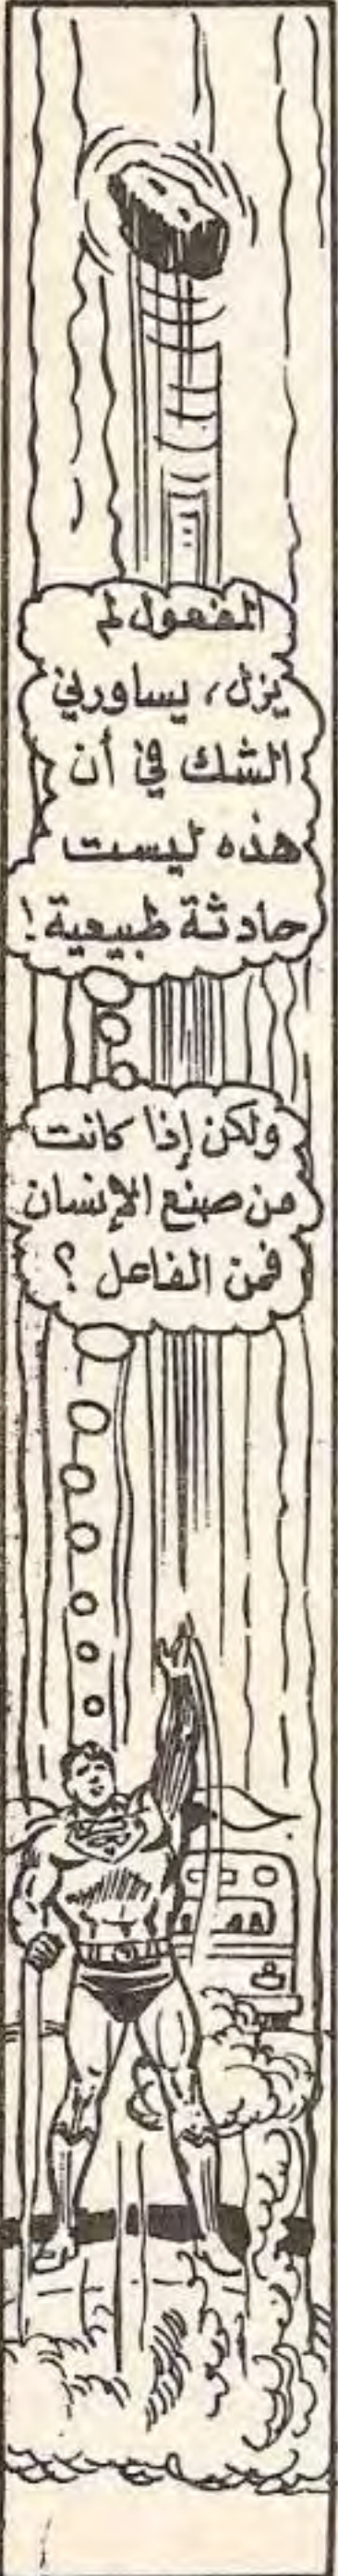 المفعول لم
يزل، يساورني
الشك في أن
هذه ليست
حادثة طبيعية!
ولكن إذا كانت
من صنع الإنسان
فمن الفاعل ؟